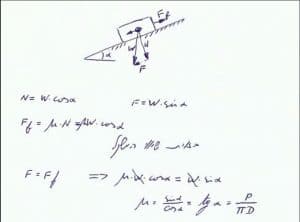 Ff
α
W
N
F
N = W·cosα
F = W·sinα
Ff = μ·N = μW·cosα
F = Ff => μ·W·cosα = W·sinα
μ = sinα/cosα = tgα = P/ΠD